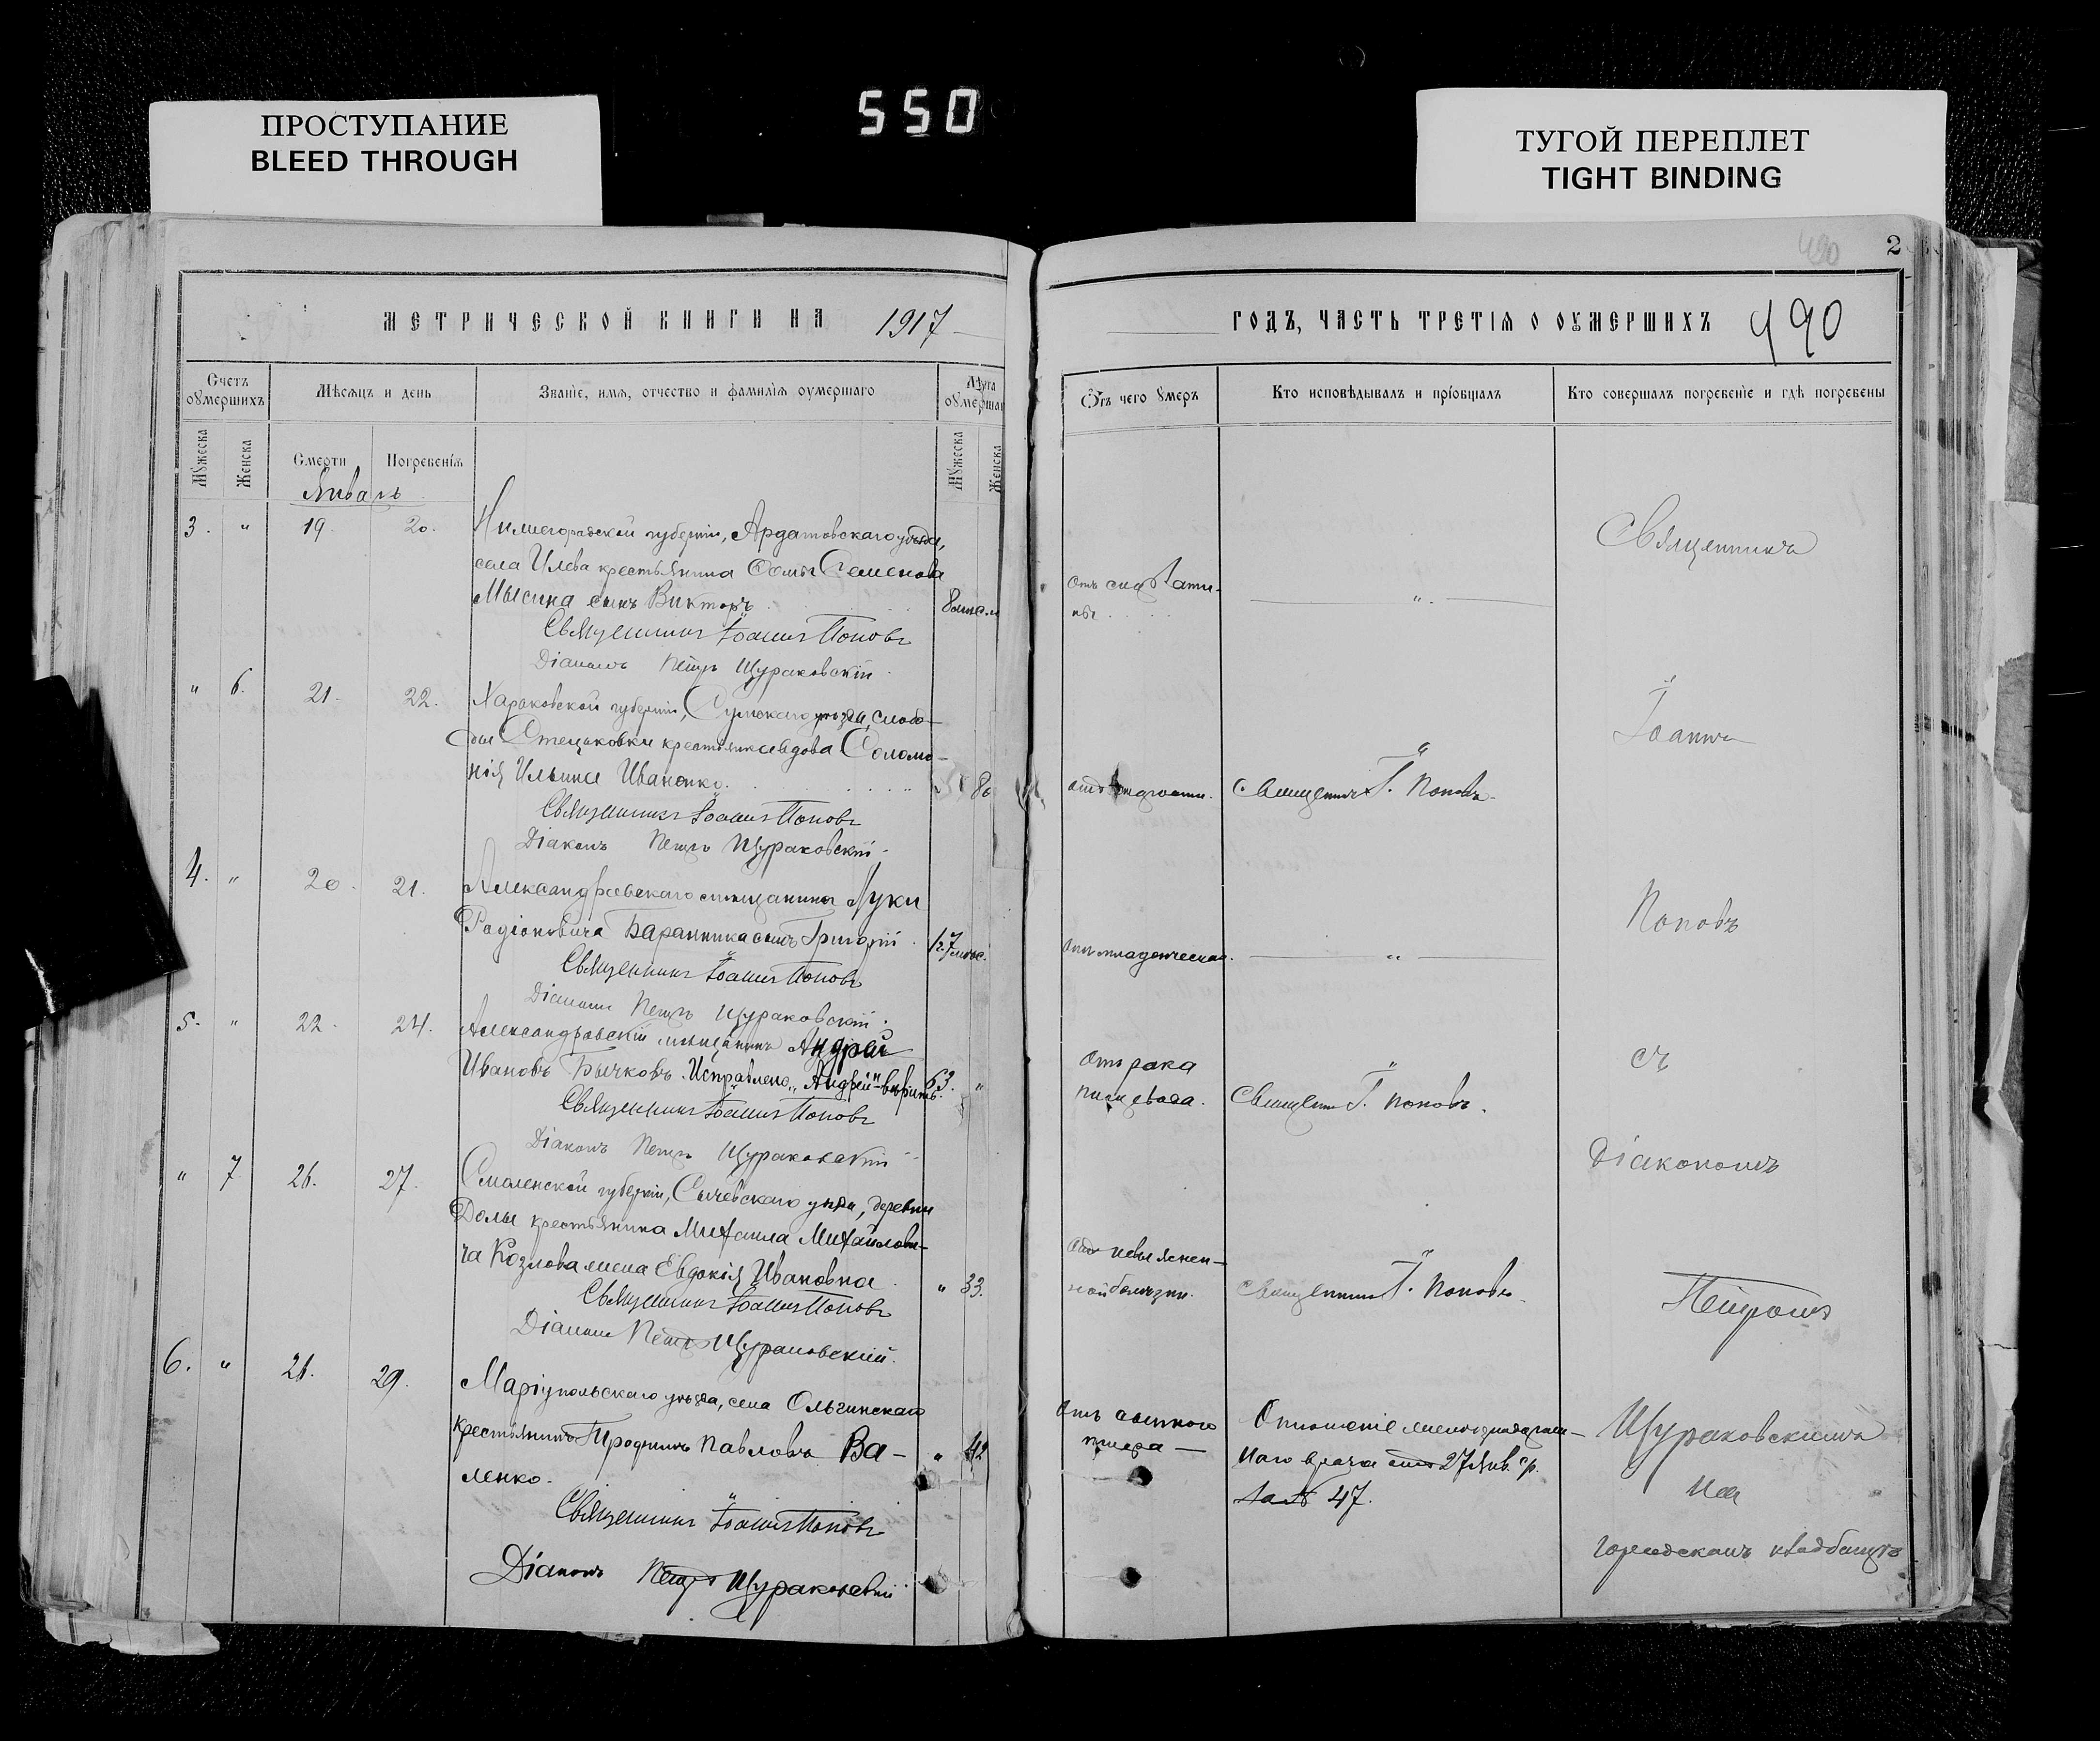 ПРОСТУПАНИЕ
BLEED THROUGH
550
ТУГОЙ ПЕРЕПЛЕТ
TIGHT BINDING
490
2
МЕТРИЧЕСКОЙ КНИГИ НА 1917
ГОДЪ, ЧАСТЬ ТРЕТІЯ О ОУМЕРШИХЪ 490
Счетъ оумершихъ
Мѣсяцъ и день
Званіе, имя, отчество и фамилія оумершаго
Лѣта оумершаго
Отъ чего умеръ
Кто исповѣдывалъ и пріобщалъ
Кто совершалъ погребеніе и гдѣ погребены
Мужеска
Женска
Смерти
Погребенія
Мужеска
Женска
Январь
3. " 19. 20. Нижегородской губерніи, Ардатовскаго уѣзда,
села Илева крестьянина Ѳомы Семенова
Мысина сынъ Викторъ
Отъ
Священникъ Іоаннъ Поповъ
Діаконъ Петръ Щураковскій.
" 6. 21. 22. Харьковской губерніи, Сумскаго уѣзда, слобо-
ды Стецьковки крестьянка вдова Соломо-
нія Ильина Иваненко. 80
Священникъ І. Поповъ.
Священникъ Іоаннъ Поповъ
Діаконъ Петръ Щураковскій.
4. " 20. 21. Александровскаго мѣщанина Луки
Радіоновича Баранника сынъ Григорій.
Отъ младенческой.
Священникъ Іоаннъ Поповъ
Діаконъ Петръ Щураковскій.
5. " 22. 24. Александровскій мѣщанинъ Андрей
Ивановъ Бычковъ. Исправлено "Андрей" вѣрить. 63. "
Отъ рака
пищевода.
Священникъ І. Поповъ.
Священникъ Іоаннъ Поповъ
Діаконъ Петръ Щураковскій
" 7 26. 27. Смоленской губерніи, Сычевскаго уѣзда, деревни
Долы крестьянина Михаила Михайлови-
ча Козлова жена Евдокія Ивановна " 33.
Отъ невыяснен-
ной болѣзни.
Священникъ І. Поповъ
Священникъ Іоаннъ Поповъ
Діаконъ Петръ Щураковскій.
6. " 29. Маріупольскаго уѣзда, села Ольгинскаго
крестьянинъ Павловъ Ва-
ленко. " 42
Отъ сыпного
тифа
Отношеніе
наго врача отъ 27 Янв. с/г.
за № 47.
Священникъ Іоаннъ Поповъ
Діаконъ Петръ Щураковскій
Священникъ
Іоаннъ
Поповъ
съ
Діакономъ
Петромъ
Щураковскимъ
на
городскомъ кладбищѣ